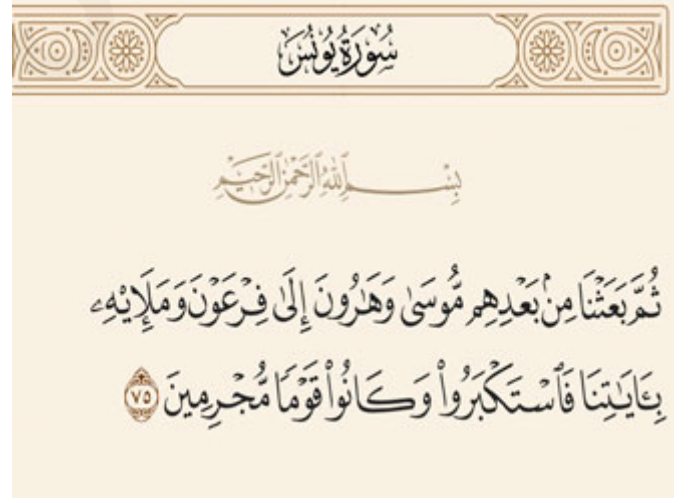 سُورَةُ يُونُسَ
بِسْمِ ٱللَّهِ ٱلرَّحْمَٰنِ ٱلرَّحِيمِ
ثُمَّ بَعَثْنَا مِنۢ بَعْدِهِم مُّوسَىٰ وَهَٰرُونَ إِلَىٰ فِرْعَوْنَ وَمَلَإِي۟هِۦ
بِـَٔايَٰتِنَا فَٱسْتَكْبَرُوا۟ وَكَانُوا۟ قَوْمًا مُّجْرِمِينَ ٧٥